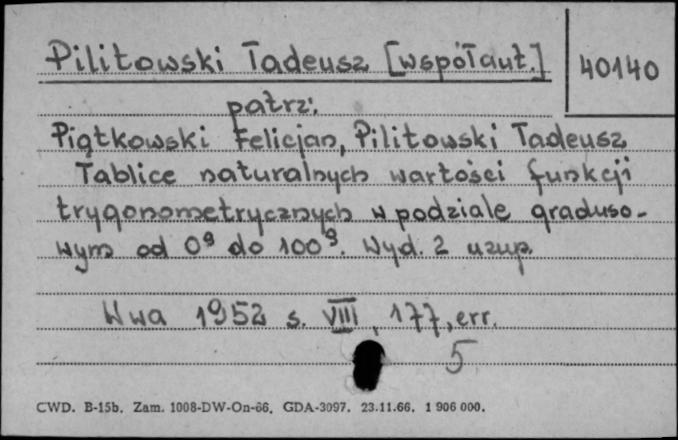 Pilitowski Tadeusz [współaut.]
40140
patrz:
Piątkowski Felicjan, Pilitowski Tadeusz
Tablice naturalnych wartości funkcji
trygonometrycznych w podziale graduso-
wym od 0g do 100g. Wyd. 2 uzup.
W-wa 1952 s. VIII, 177, err.
5
CWD. B-15b. Zam. 1008-DW-On-66. GDA-3097. 23.11.66. 1 906 000.